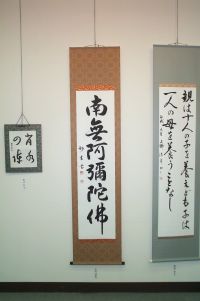 親は十人の子を養えども子は
一人の母を養うことなし
南無阿彌陀佛
背水
の陣